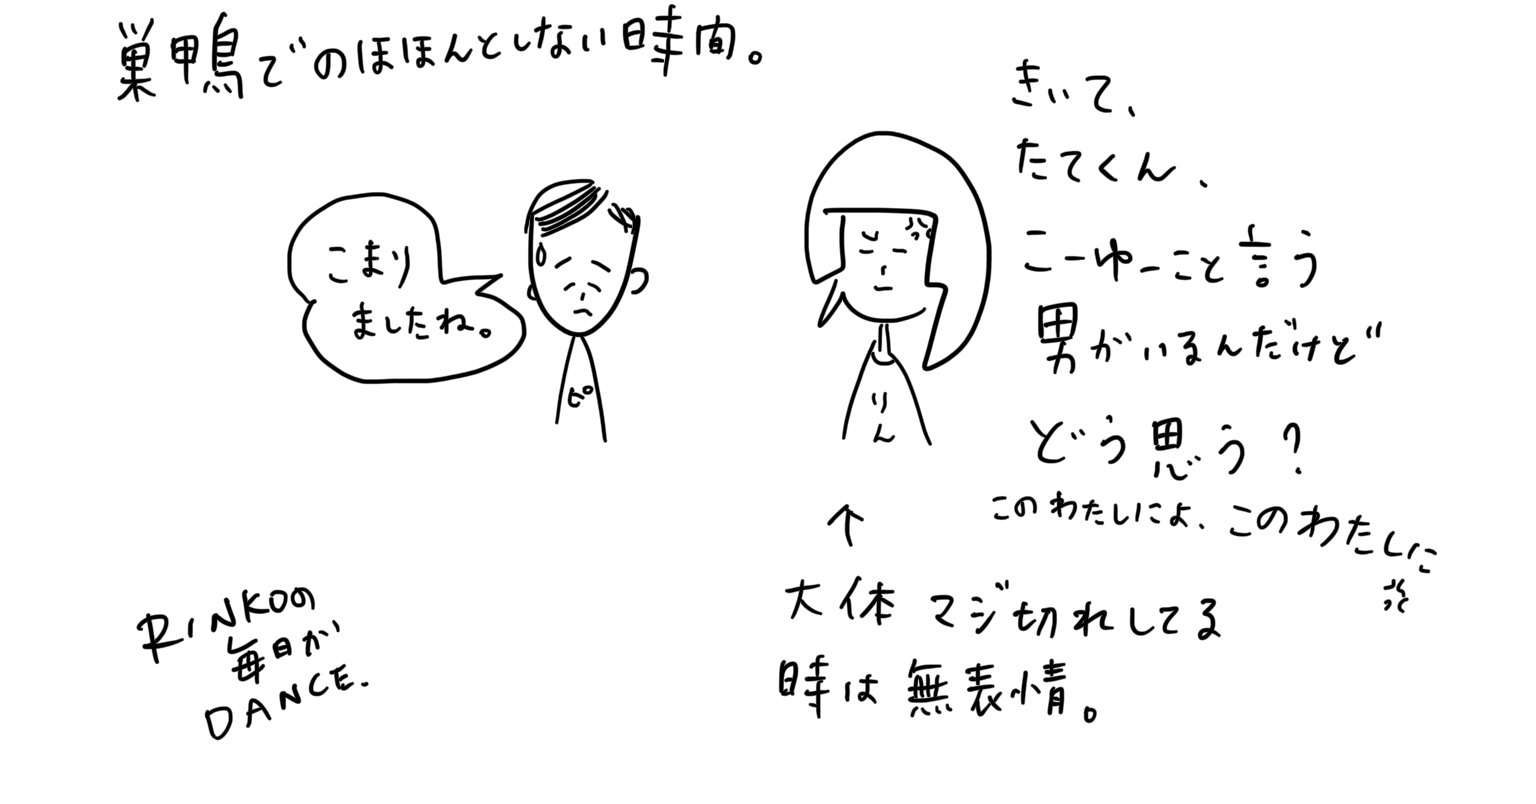 巣鴨でのほほんとしない時間。
きいて、
たてくん、
こーゆーこと言う
男がいるんだけど
どう思う?
このわたしによ、このわたしに
こまり
ましたね。
ピ
りん
↑
大体マジ切れしてる
時は無表情。
RINKOの
毎日が
DANCE.